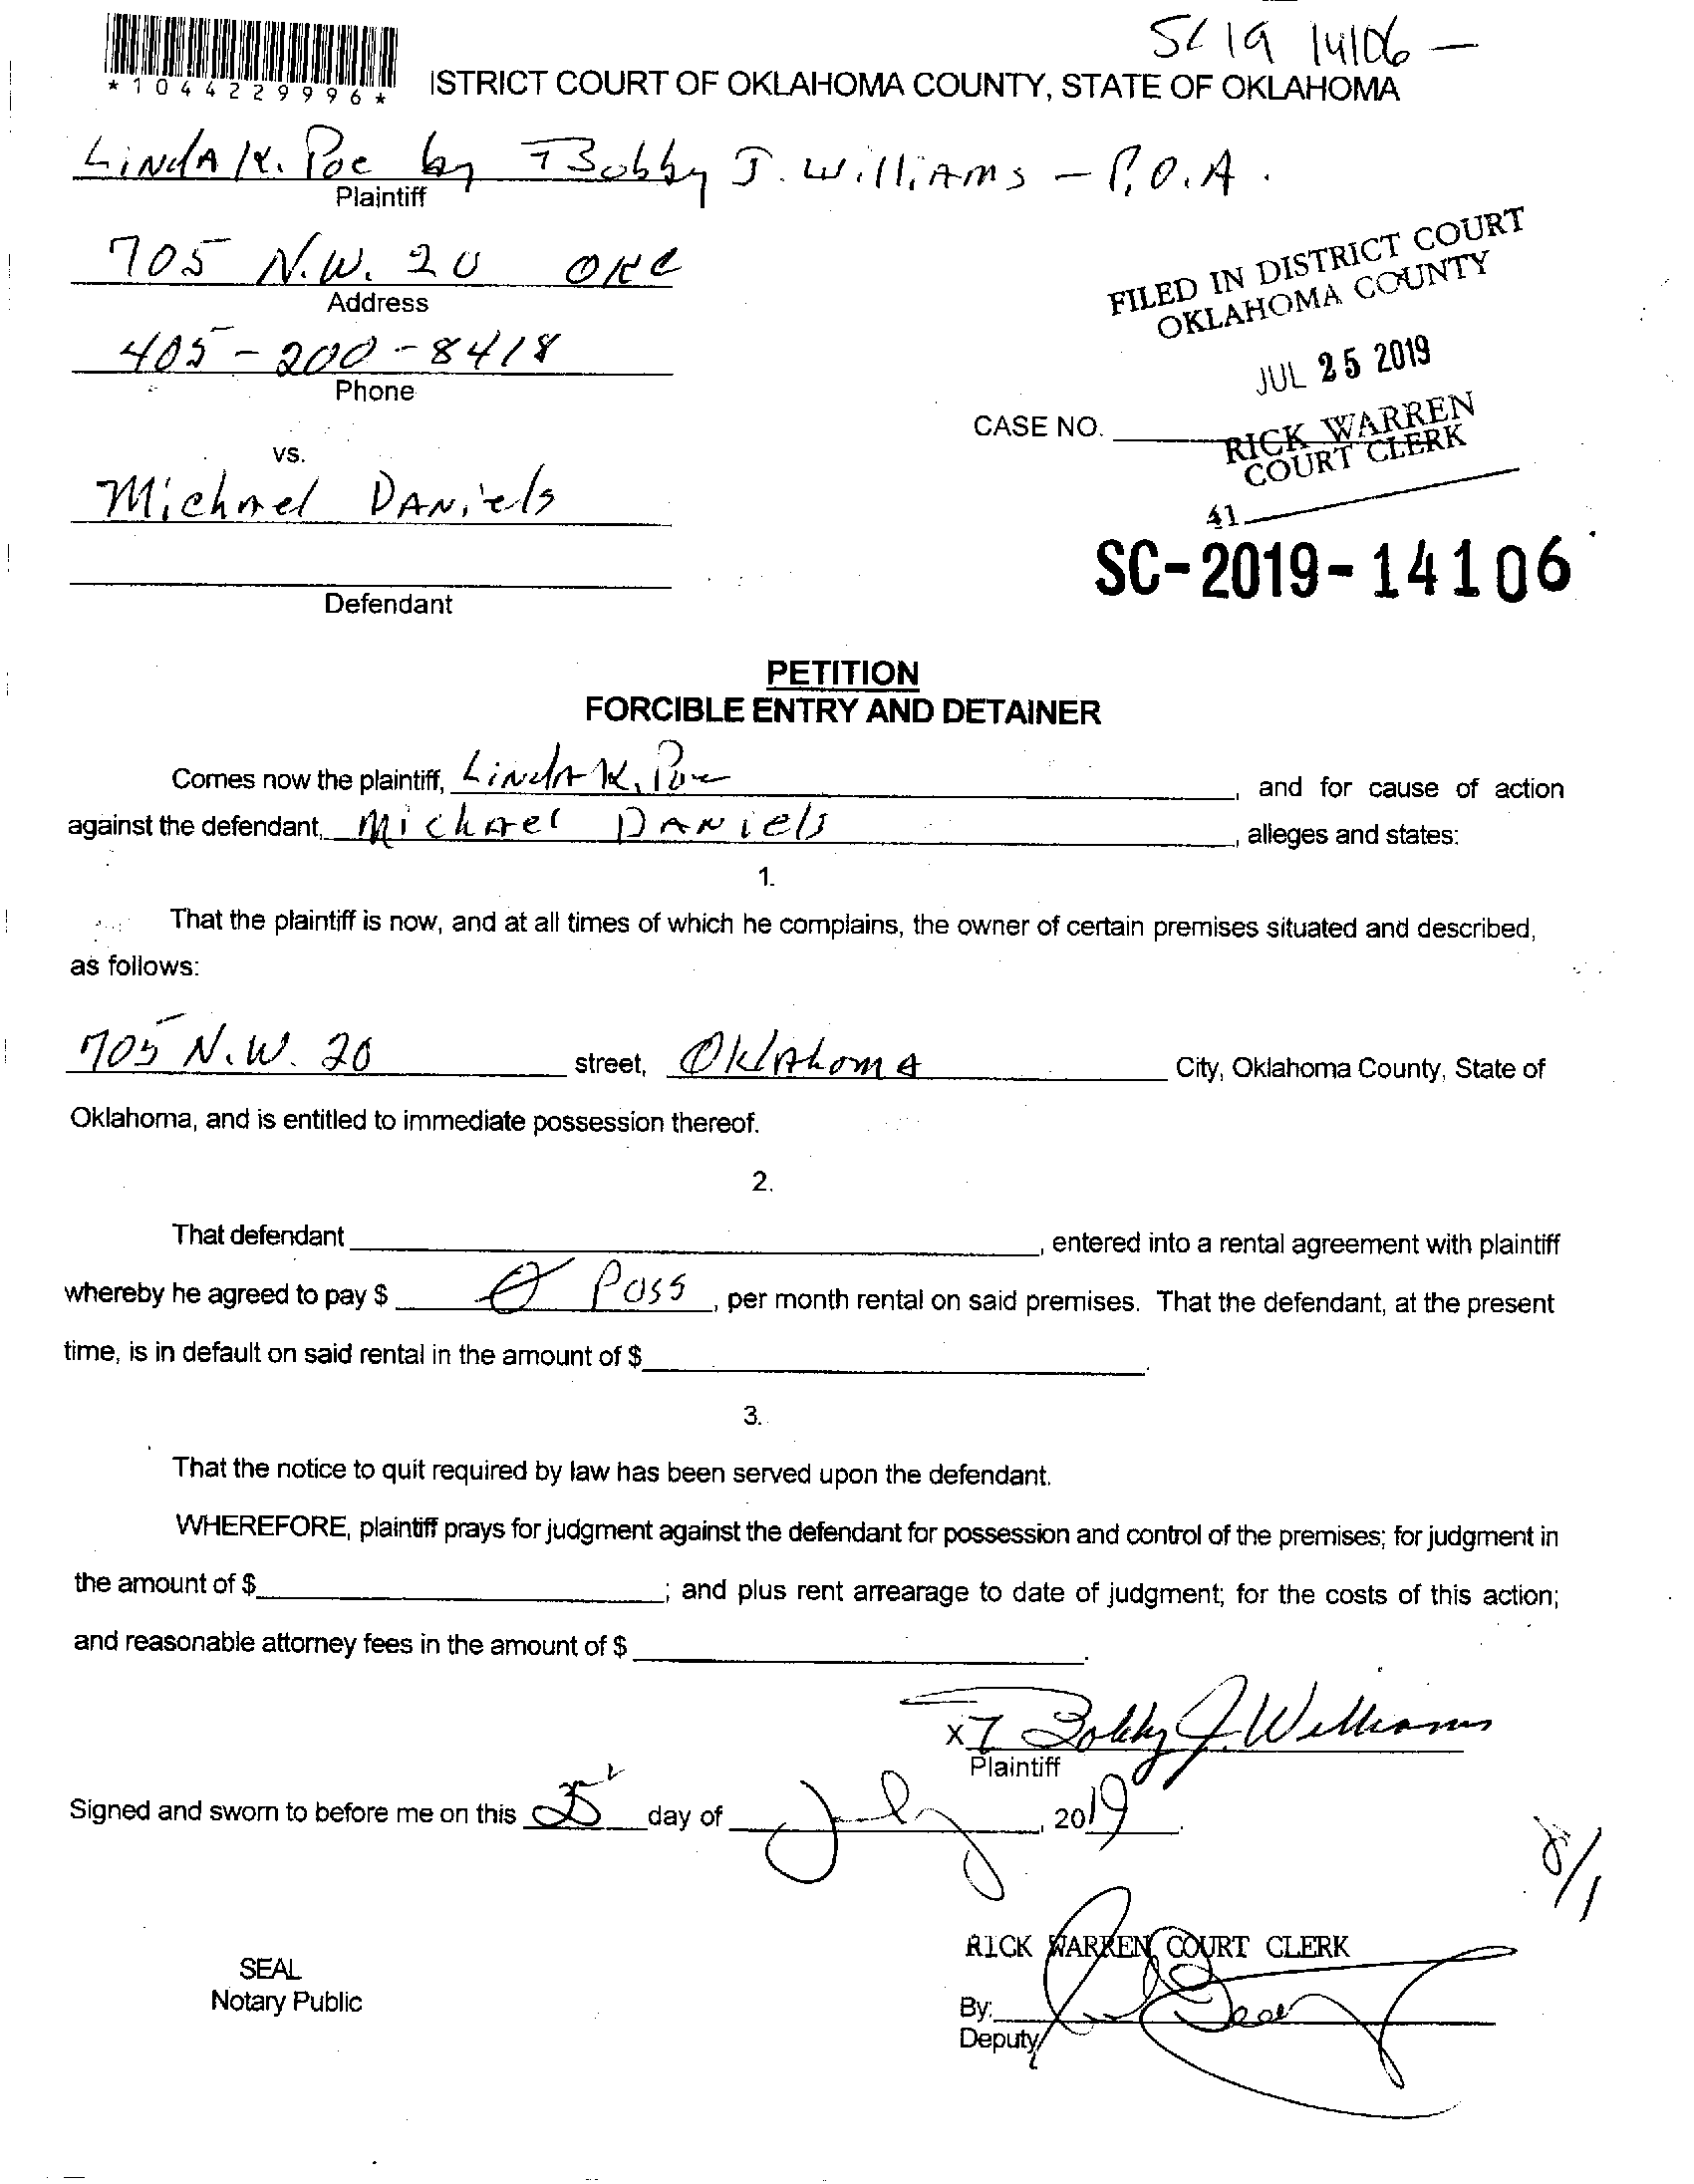 SC 19 14106 -
*1044229996*
ISTRICT COURT OF OKLAHOMA COUNTY, STATE OF OKLAHOMA
LiNdA K. Poe by T Bobby J. WilliAms - P.O.A.
Plaintiff
705 N.W. 20 OKC
Address
405-200-8418
Phone
FILED IN DISTRICT COURT
OKLAHOMA COUNTY
JUL 25 2019
RICK WARREN
COURT CLERK
41
CASE NO.
vs.
Michael DANiels
Defendant
SC-2019-14106
PETITION
FORCIBLE ENTRY AND DETAINER
Comes now the plaintiff, LindA K. Poe, and for cause of action
against the defendant, MichAel DANiels, alleges and states:
1.
That the plaintiff is now, and at all times of which he complains, the owner of certain premises situated and described,
as follows:
705 N.W. 20 street, OklAhomA City, Oklahoma County, State of
Oklahoma, and is entitled to immediate possession thereof.
2.
That defendant , entered into a rental agreement with plaintiff
whereby he agreed to pay $ Poss, per month rental on said premises. That the defendant, at the present
time, is in default on said rental in the amount of $ .
3.
That the notice to quit required by law has been served upon the defendant.
WHEREFORE, plaintiff prays for judgment against the defendant for possession and control of the premises; for judgment in
the amount of $ ; and plus rent arrearage to date of judgment; for the costs of this action;
and reasonable attorney fees in the amount of $ .
X T Bobby J. Williams
Plaintiff
Signed and sworn to before me on this 25 day of July, 2019.
8/1
RICK WARREN COURT CLERK
SEAL
Notary Public
By:
Deputy